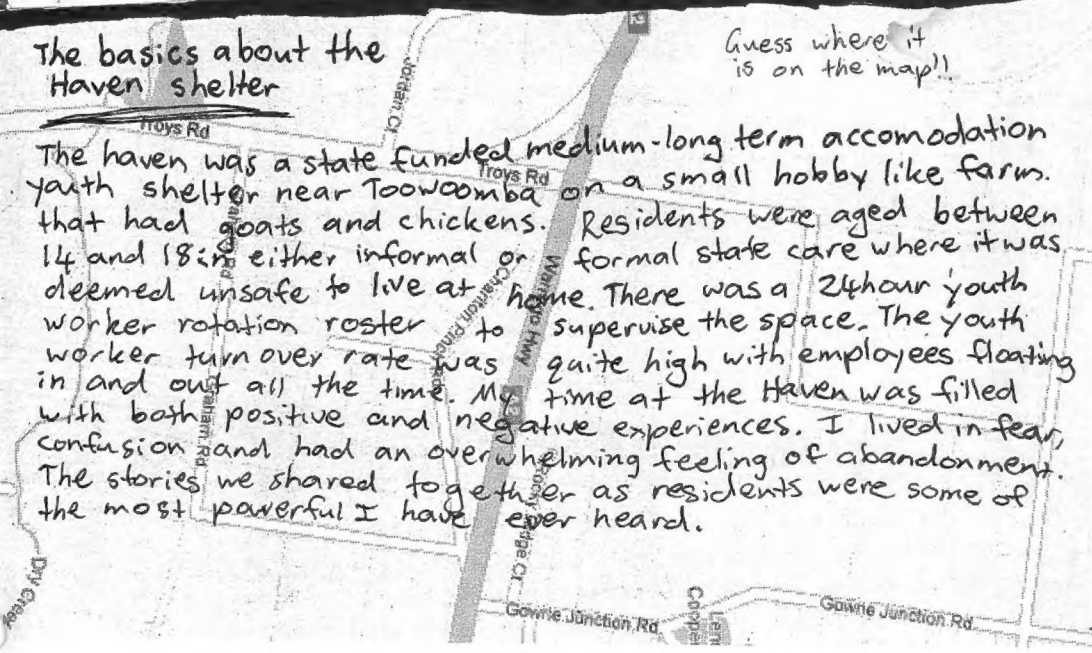 The basics about the
Haven shelter
Guess where it
is on the map!!
The haven was a state funded medium-long term accomodation
youth shelter near Toowoomba on a small hobby like farm.
that had goats and chickens. Residents were aged between
14 and 18 in either informal or formal state care where it was
deemed unsafe to live at home. There was a 24hour youth
worker rotation roster to supervise the space. The youth
worker turn over rate was quite high with employees floating
in and out all the time. My time at the Haven was filled
with both positive and negative experiences. I lived in fear,
confusion and had an overwhelming feeling of abandonment.
The stories we shared together as residents were some of
the most powerful I have ever heard.
Jordan Ct
Troys Rd
Troys Rd
Warrego Hwy
Graham Rd
Ridge Ct
Dry Creek
Gowrie Junction Rd
Cooper
Gowrie Junction Rd